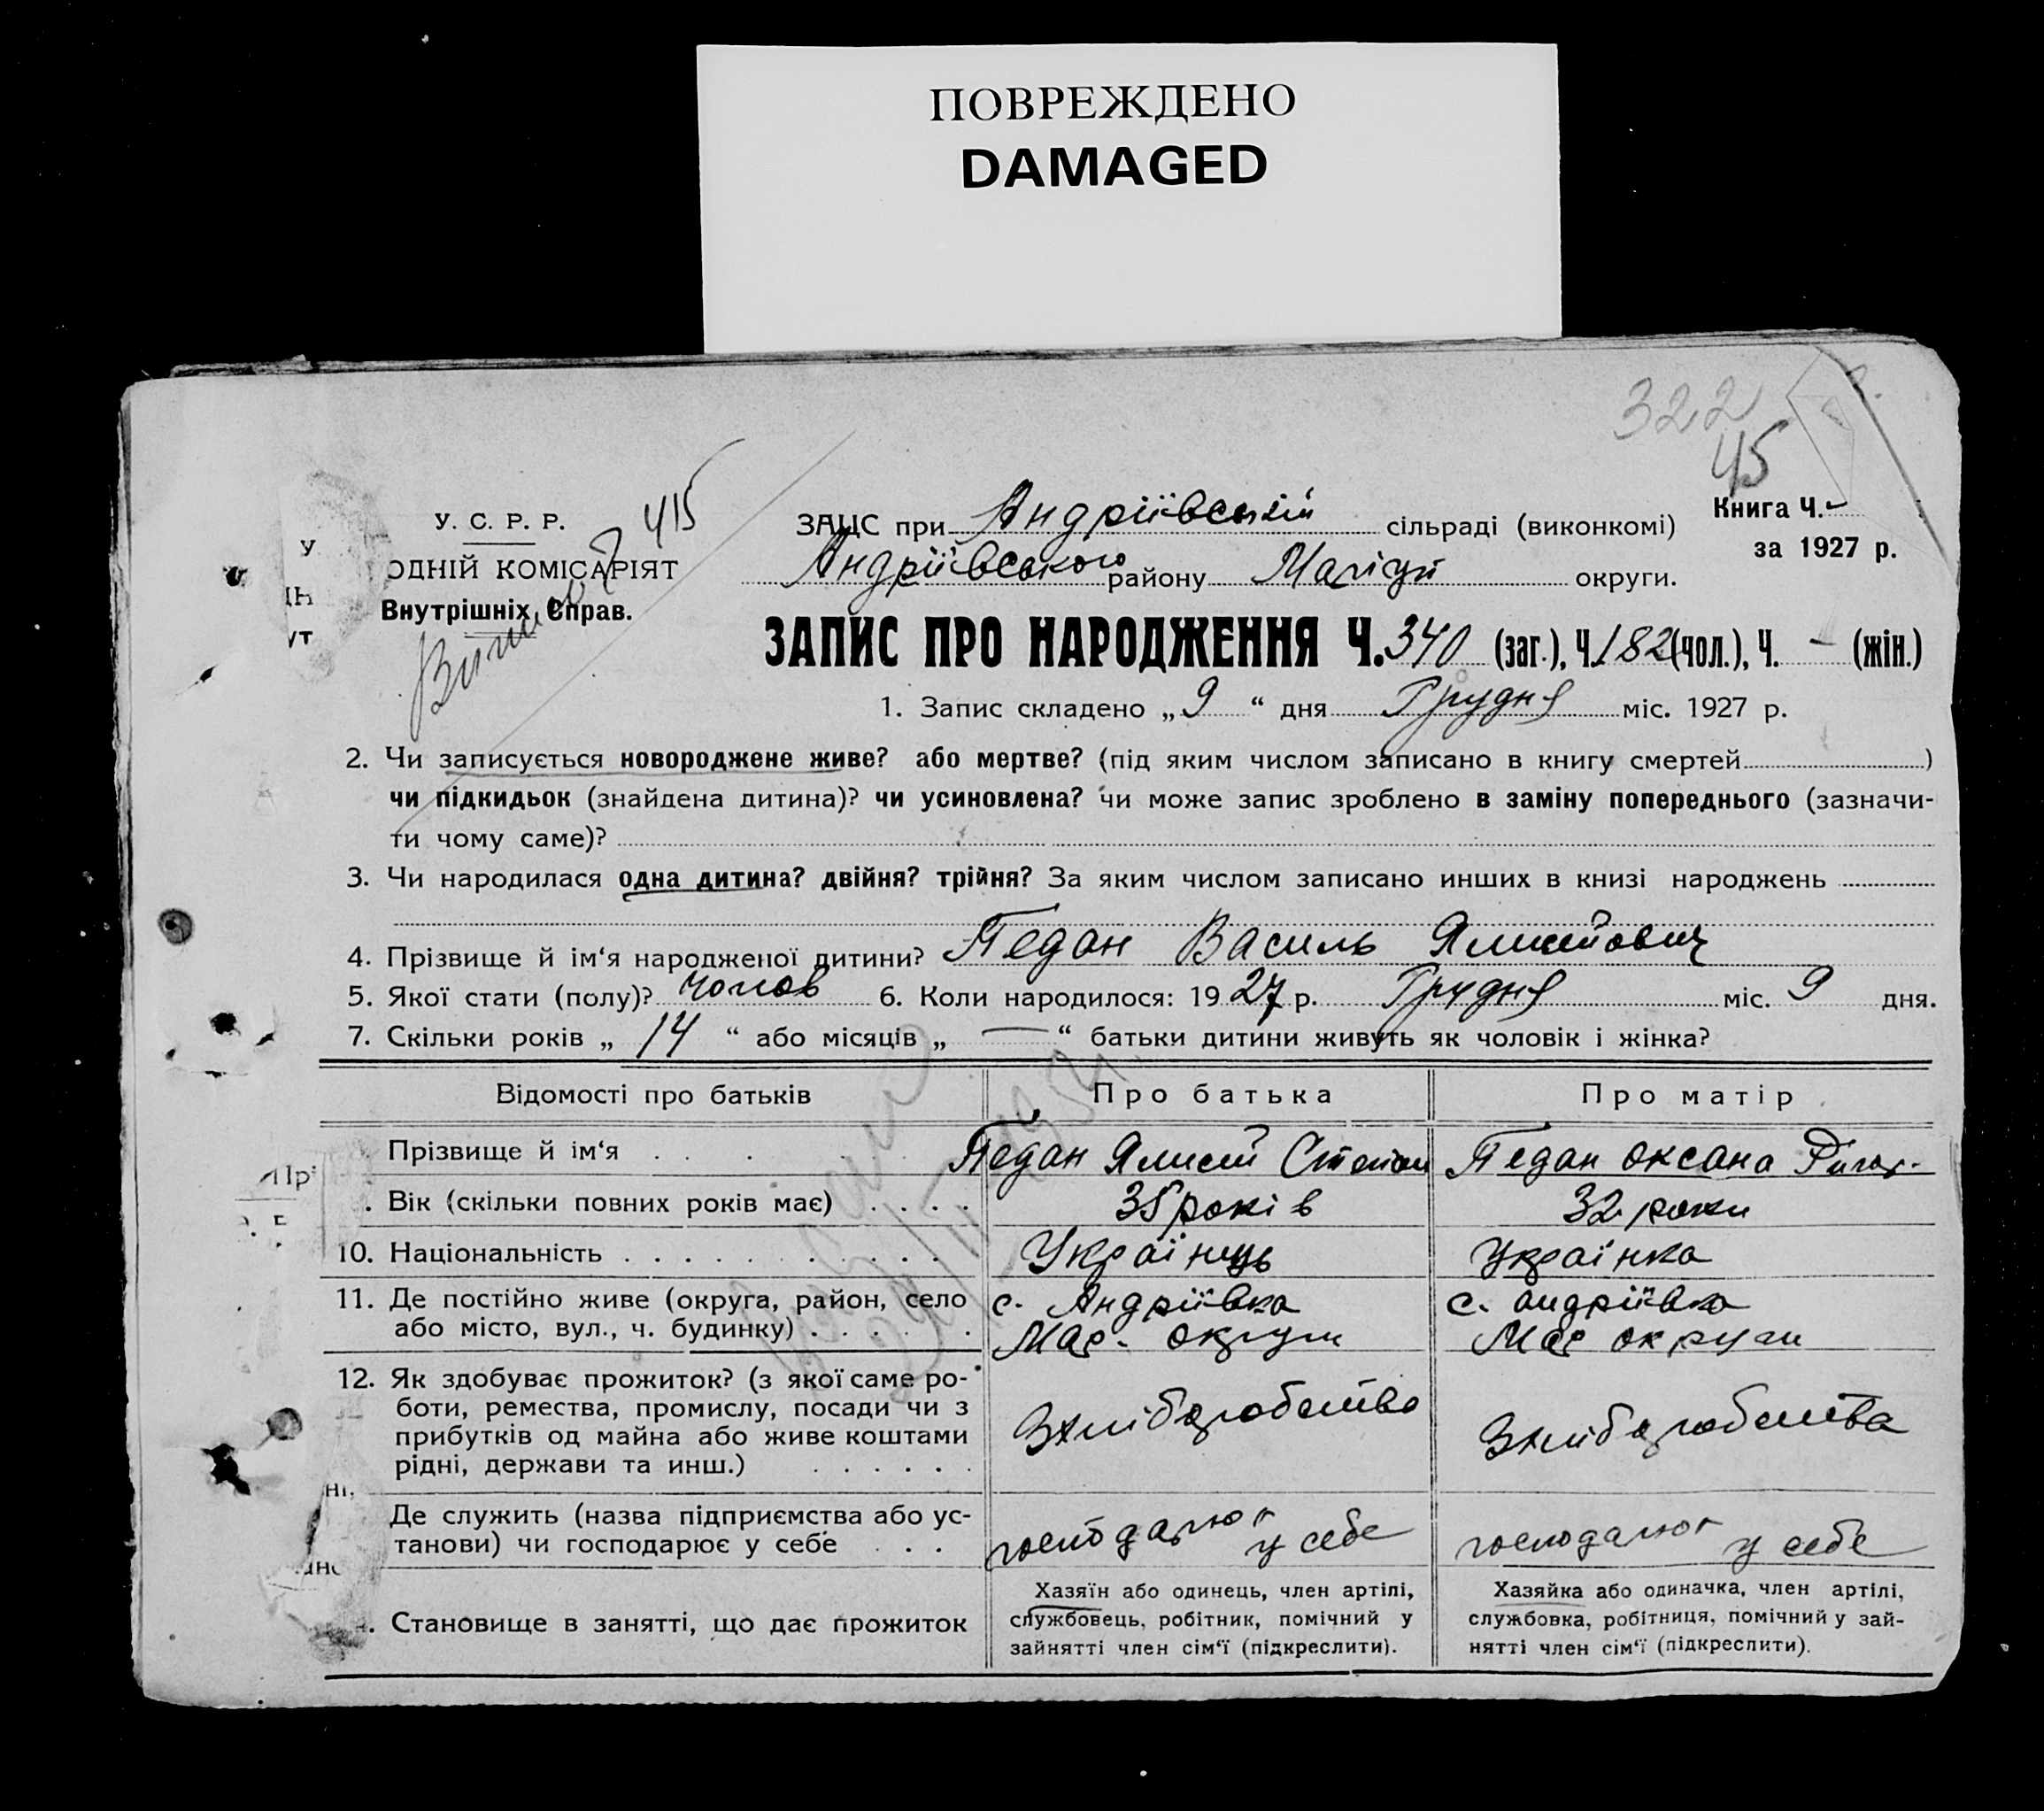 ПОВРЕЖДЕНО
DAMAGED
322
45
У. С. Р. Р.
415
ЗАЦС при Андріївській сільраді (виконкомі)
Книга Ч. -
за 1927 р.
ОДНІЙ КОМІСАРІЯТ
Андріївського району Маріуп округи.
Внутрішніх Справ.
ЗАПИС ПРО НАРОДЖЕННЯ Ч. 340 (заг.), Ч. 182 (чол.), Ч. - (жін.)
1. Запис складено „ 9 “ дня Грудня міс. 1927 р.
2. Чи записується новороджене живе? або мертве? (під яким числом записано в книгу смертей )
чи підкидьок (знайдена дитина)? чи усиновлена? чи може запис зроблено в заміну попереднього (зазначи-
ти чому саме)?
3. Чи народилася одна дитина? двійня? трійня? За яким числом записано инших в книзі народжень
4. Прізвище й ім‘я народженої дитини? Педан Василь
5. Якої стати (полу)? чолов 6. Коли народилося: 19 27 р. Грудня міс. 9 дня.
7. Скільки років „ 14 “ або місяців „ — “ батьки дитини живуть як чоловік і жінка?
Відомості про батьків Про батька Про матір
Прізвище й ім‘я Педан Педан Оксана
. Вік (скільки повних років має) 35 років 32 роки
10. Національність Українць Українка
11. Де постійно живе (округа, район, село с. Андріївка с. Андріївка
або місто, вул., ч. будинку) Мар. округи Мар округи
12. Як здобуває прожиток? (з якої саме ро-
боти, ремества, промислу, посади чи з Зхліборобства Зхліборобства
прибутків од майна або живе коштами
рідні, держави та инш.)
Де служить (назва підприємства або ус-
танови) чи господарює у себе господарює у себе господарює у себе
Становище в занятті, що дає прожиток
Хазяїн або одинець, член артілі,
службовець, робітник, помічний у
зайнятті член сім‘ї (підкреслити).
Хазяйка або одиначка, член артілі,
службовка, робітниця, помічний у зай-
нятті член сім‘ї (підкреслити).